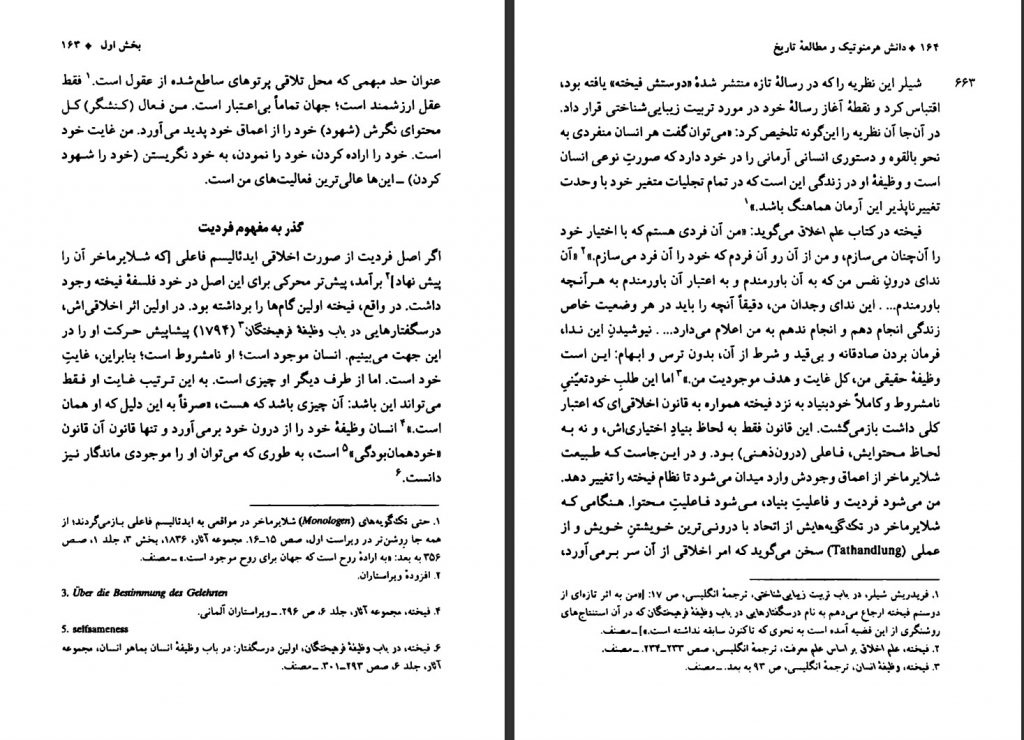 بخش اول ♦ ۱۶۳
عنوان حد مبهمی که محل تلاقی پرتوهای ساطع‌شده از عقول است.۱ فقط
عقل ارزشمند است؛ جهان تماماً بی‌اعتبار است. من فعال (کنشگر) کل
محتوای نگرش (شهود) خود را از اعماق خود پدید می‌آورد. من غایت خود
است. خود را اراده کردن، خود را نمودن، به خود نگریستن (خود را شهود
کردن) ــ این‌ها عالی‌ترین فعالیت‌های من است.
گذر به مفهوم فردیت
اگر اصل فردیت از صورت اخلاقی ایدئالیسم فاعلی [که شلایرماخر آن را
پیش نهاد]۲ برآمد، پیش‌تر محرکی برای این اصل در خود فلسفهٔ فیخته وجود
داشت. در واقع، فیخته اولین گام‌ها را برداشته بود. در اولین اثر اخلاقی‌اش،
درسگفتارهایی در باب وظیفهٔ فرهیختگان۳ (۱۷۹۴) پیشاپیش حرکت او را در
این جهت می‌بینیم. انسان موجود است؛ او نامشروط است؛ بنابراین، غایتِ
خود است. اما از طرف دیگر او چیزی است. به این ترتیب غایت او فقط
می‌تواند این باشد: آن چیزی باشد که هست، «صرفاً به این دلیل که او همان
است.»۴ انسان وظیفهٔ خود را از درون خود برمی‌آورد و تنها قانون آن قانون
«خودهمان‌بودگی»۵ است، به طوری که می‌توان او را موجودی ماندگار نیز
دانست.۶
۱. حتی تک‌گویه‌های (Monologen) شلایرماخر در مواقعی به ایدئالیسم فاعلی بازمی‌گردند؛ از
همه جا روشن‌تر در ویراست اول، صص ۱۵ــ۱۶. مجموعه آثار، ۱۸۳۶، بخش ۳، جلد ۱، صص
۳۵۶ به بعد: «به ارادهٔ روح است که جهان برای روح موجود است.» ــ مصنف.
۲. افزودهٔ ویراستاران.
3. Über die Bestimmung des Gelehrten
۴. فیخته، مجموعه آثار، جلد ۶، ص ۲۹۶. ــ ویراستاران آلمانی.
5. selfsameness
۶. فیخته، در باب وظیفهٔ فرهیختگان، اولین درسگفتار: در باب وظیفهٔ انسان بماهو انسان، مجموعه
آثار، جلد ۶، صص ۲۹۳ــ۳۰۱. ــ مصنف.
۱۶۴ ♦ دانش هرمنوتیک و مطالعهٔ تاریخ
۶۶۳ شیلر این نظریه را که در رسالهٔ تازه منتشر شدهٔ «دوستش فیخته» یافته بود،
اقتباس کرد و نقطهٔ آغاز رسالهٔ خود در مورد تربیت زیبایی‌شناختی قرار داد.
در آن‌جا آن نظریه را این‌گونه تلخیص کرد: «می‌توان گفت هر انسان منفردی به
نحو بالقوه و دستوری انسانی آرمانی را در خود دارد که صورتِ نوعی انسان
است و وظیفهٔ او در زندگی این است که در تمام تجلیات متغیر خود با وحدت
تغییرناپذیر این آرمان هماهنگ باشد.»۱
فیخته در کتاب علم اخلاق می‌گوید: «من آن فردی هستم که با اختیار خود
را آن‌چنان می‌سازم، و من از آن رو آن فردم که خود را آن فرد می‌سازم.»۲ «آن
ندای درونِ نفس من که به آن باورمندم و به اعتبار آن باورمندم به هرآنچه
باورمندم... . این ندای وجدان من، دقیقاً آنچه را باید در هر وضعیت خاص
زندگی انجام دهم و انجام ندهم به من اعلام می‌دارد... . نیوشیدنِ این ندا،
فرمان بردن صادقانه و بی‌قید و شرط از آن، بدون ترس و ابهام: این است
وظیفهٔ حقیقی من، کل غایت و هدف موجودیت من.»۳ اما این طلبِ خودتعیّنیِ
نامشروط و کاملاً خودبنیاد به نزد فیخته همواره به قانون اخلاقی‌ای که اعتبار
کلی داشت بازمی‌گشت. این قانون فقط به لحاظ بنیادِ اختیاری‌اش، و نه به
لحاظ محتوایش، فاعلی (درون‌ذهنی) بود. و در این‌جاست که طبیعت
شلایرماخر از اعماق وجودش وارد میدان می‌شود تا نظام فیخته را تغییر دهد.
من می‌شود فردیت و فاعلیتِ بنیاد، می‌شود فاعلیتِ محتوا. هنگامی که
شلایرماخر در تک‌گویه‌هایش از اتحاد با درونی‌ترین خویشتنِ خویش و از
عملی (Tathandlung) سخن می‌گوید که امر اخلاقی از آن سر برمی‌آورد،
۱. فریدریش شیلر، در باب تربیت زیبایی‌شناختی، ترجمهٔ انگلیسی، ص ۱۷: [«من به اثر تازه‌ای از
دوستم فیخته ارجاع می‌دهم به نام درسگفتارهایی در باب وظیفهٔ فرهیختگان که در آن استنتاج‌های
روشنگری از این قضیه آمده است به نحوی که تاکنون سابقه نداشته است.»] ــ مصنف.
۲. فیخته، علم اخلاق بر اساس علم معرفت، ترجمهٔ انگلیسی، صص ۲۳۳ــ۲۳۴. ــ مصنف.
۳. فیخته، وظیفهٔ انسان، ترجمهٔ انگلیسی، ص ۹۳ به بعد. ــ مصنف.